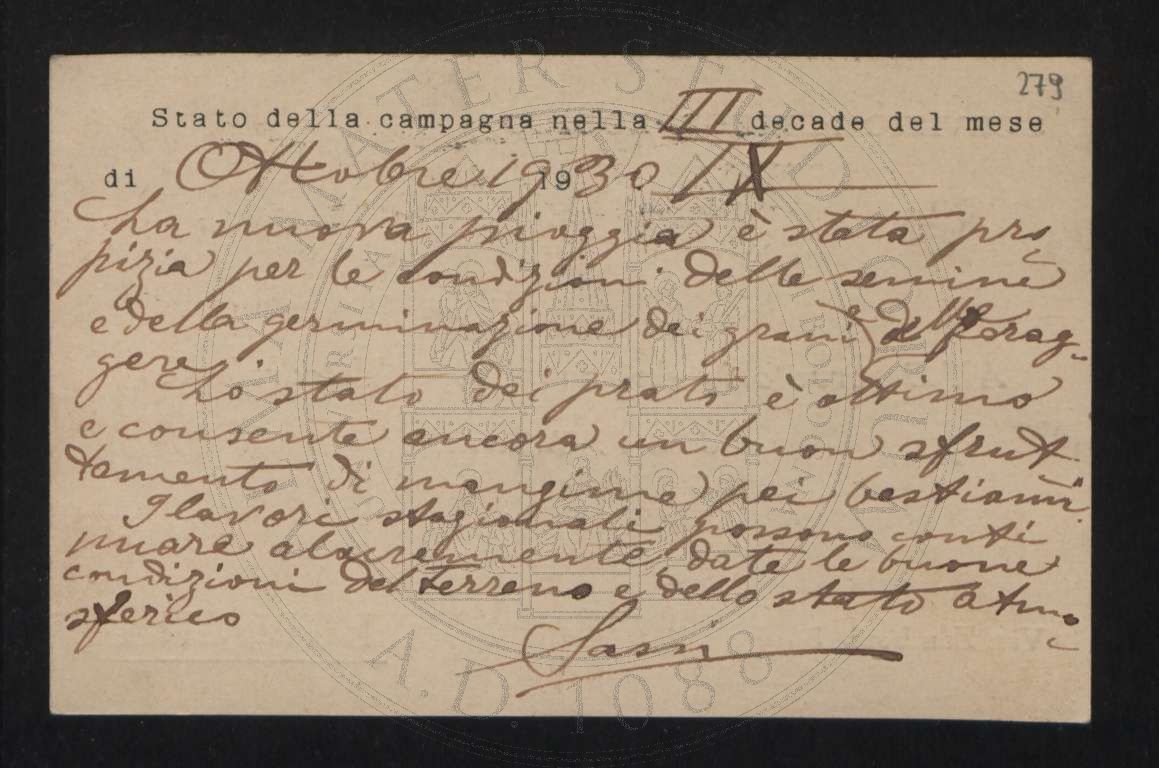 279
Stato della campagna nella III decade del mese
di Ottobre 1930 19 IX
La nuova pioggia è stata pro
pizia per le condizioni delle semine
e della germinazione dei grani e delle forag-
gere
Lo stato dei prati è ottimo
e consente ancora un buon sfrut
tamento di mangime pei bestiami.
I lavori stagionali possono conti
nuare alacremente, date le buone
condizioni del terreno e dello stato atmo
sferico
Sassi
ALMA MATER STUDIORUM
A.D. 1088